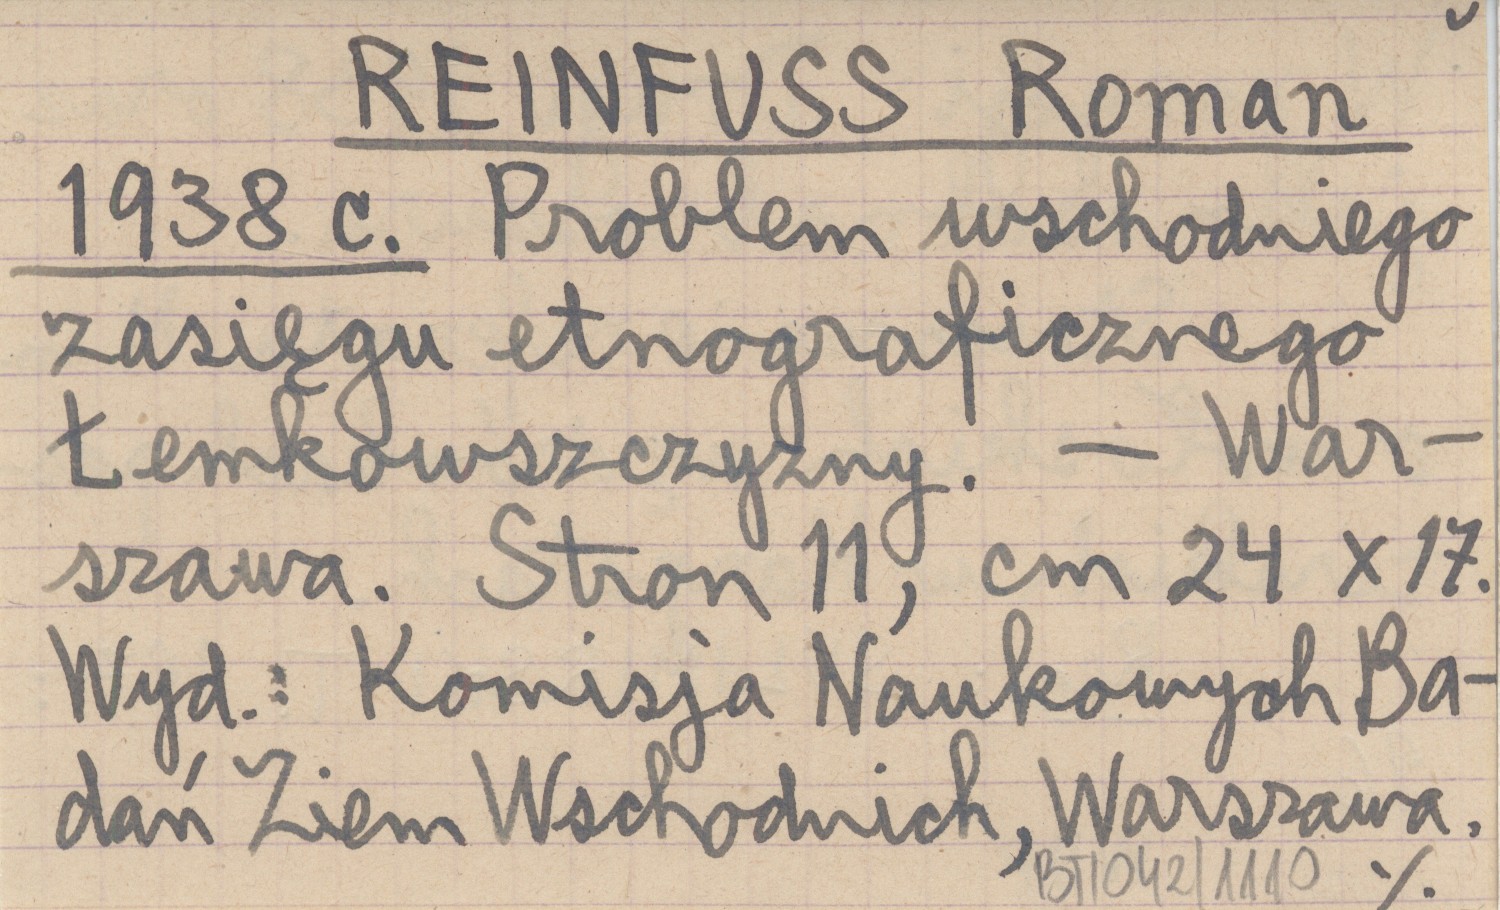 REINFUSS Roman
1938 c. Problem wschodniego
zasięgu etnograficznego
Łemkowszczyzny. — War-
szawa. Stron 11, cm 24 x 17.
Wyd.: Komisja Naukowych Ba-
dań Ziem Wschodnich, Warszawa.
BTI042/1110 ·/.